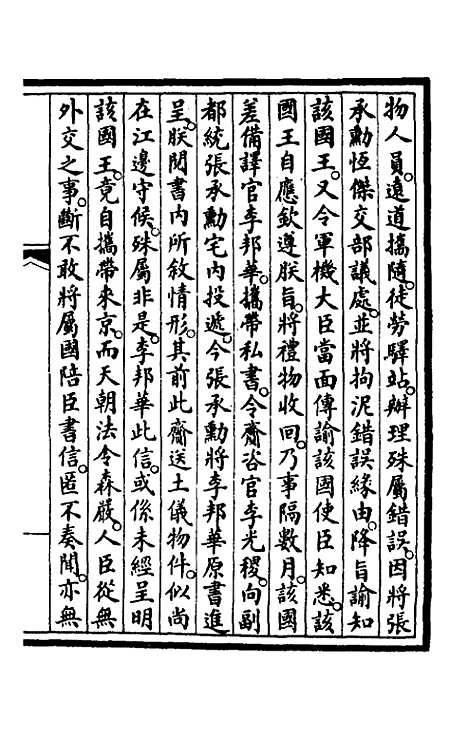 物人員。遠道攜隨。徒勞驛站。辦理殊屬錯誤。因將張
承勳恆傑交部議處。並將拘泥錯誤緣由。降旨諭知
該國王。又令軍機大臣當面傳諭該國使臣知悉。該
國王自應欽遵朕旨。將禮物收回。乃事隔數月。該國
差備譯官李邦華。攜帶私書。令齎咨官李光稷。向副
都統張承勳宅內投遞。今張承勳將李邦華原書進
呈。朕閱書內所敘情形。其前此齎送土儀物件。似尚
在江邊守候。殊屬非是。李邦華此信。或係未經呈明
該國王。竟自攜帶來京。而天朝法令森嚴。人臣從無
外交之事。斷不敢將屬國陪臣書信。匿不奏聞。亦無